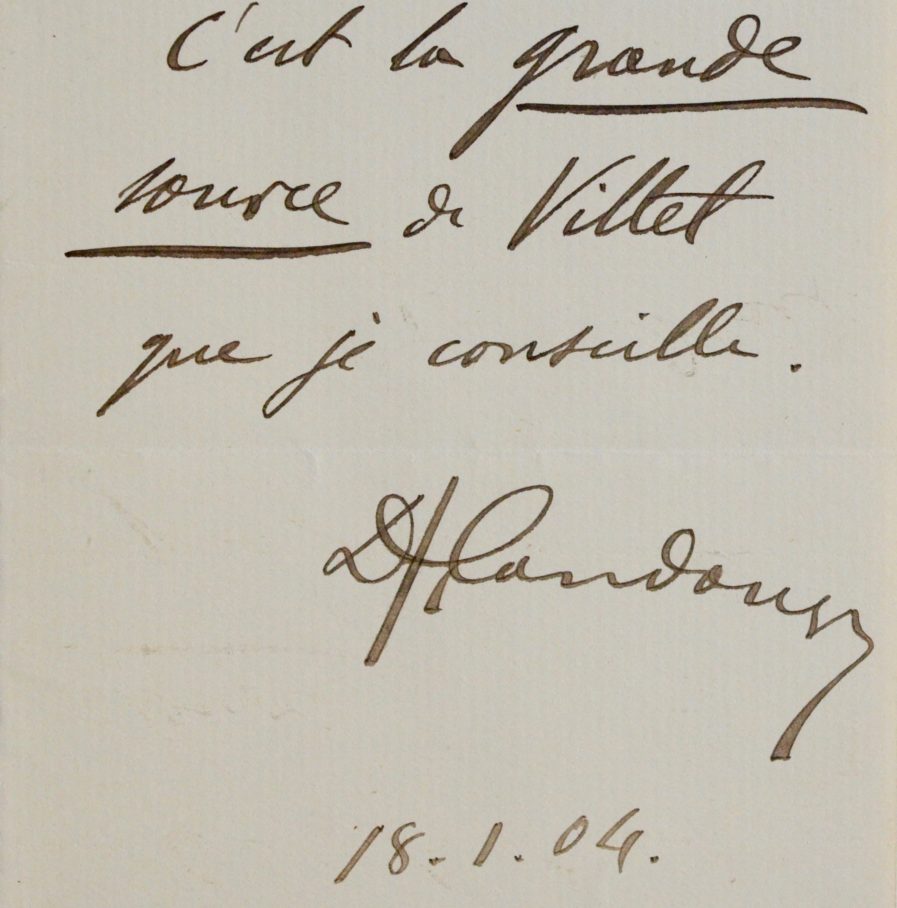 C'est la grande
source de Vittel
que je conseille.
Dr Landouzy
18.1.04.